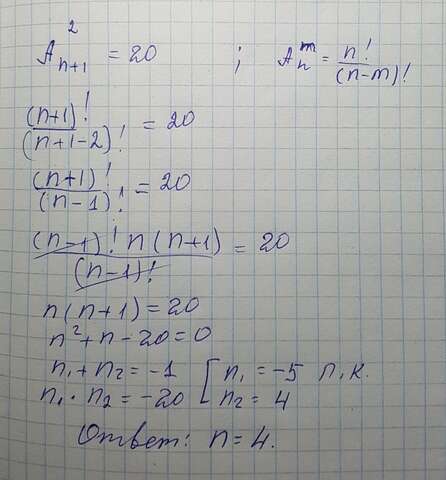 A²ₙ₊₁ = 20 ; Aₙᵐ = n!/(n-m)!
(n+1)!/(n+1-2)! = 20
(n+1)!/(n-1)! = 20
(n-1)! n(n+1)/(n-1)! = 20
n(n+1) = 20
n²+n-20=0
n₁+n₂ = -1 [ n₁ = -5 п.к.
n₁·n₂ = -20 [ n₂ = 4
Ответ: n=4.